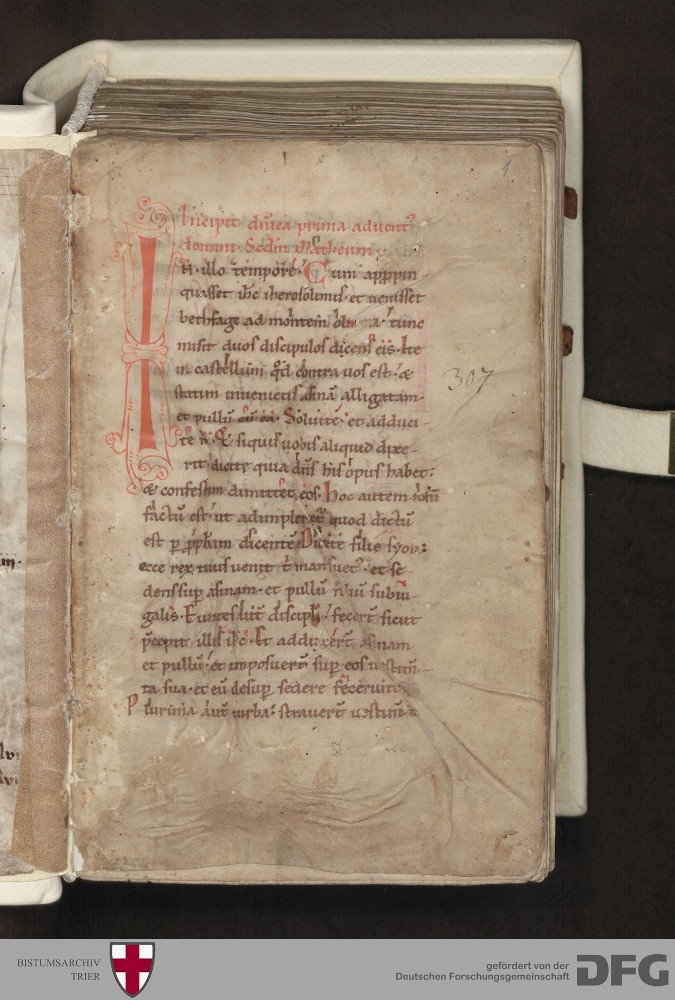 1
Incipit dnica prima advent
domini. Scdm Matheum.
In illo tempore. Cum appropin-
quasset ihc iherosolimis. et uenisset
bethfage ad montem oliueti. tunc
misit duos discipulos dicens eis. Ite
in castellum qd contra uos est. &
statim inuenietis asinā alligatam.
et pullū cū ea. Soluite. et adduci-
te m. Et siquis uobis aliquid dixe-
rit dicite quia dns his opus habet:
& confestim dimittet eos. Hoc autem totū
factū est. ut adimpleretur quod dictū
est per ppham dicentē. Dicite filie syon:
ecce rex tuus uenit t mansuet. et se-
dens sup asinam. et pullū filiū subiu
galis. Euntes aut discipli. fecert sicut
pcepit illis ihc. Et adduxert asinam
et pullū. et imposuert sup eos uestim-
ta sua. et eū desup sedere fecerunt.
Plurima aut turba. strauert uestim
307
BISTUMSARCHIV
TRIER
gefördert von der
Deutschen Forschungsgemeinschaft
DFG